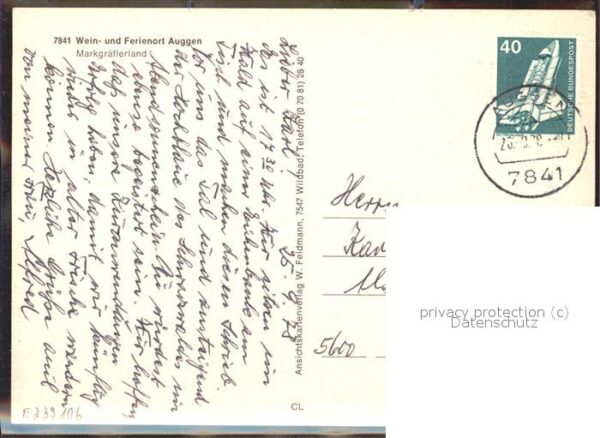 7841 Wein- und Ferienort Auggen
Markgräflerland
25. 9. 78
Lieber Karl!
Es ist 17 30 Uhr. Wir sitzen im
Wald auf einer Ruhebank am
Tisch und machen diesen Schrieb.
Vor uns das Tal und ansteigend
der Hochblaue des Schwarzwaldes im
Abendsonnenschein. Du würdest
begeistert sein. Wir hoffen,
daß unsere Wanderungen
Erfolg haben, damit wir künftig
wieder in alter Frische wandern
können. Herzliche Grüße auch
von meiner Frau, Alfred
Ansichtskartenverlag W. Feldmann, 7547 Wildbad, Telefon (0 70 81) 28 40
CL
40
DEUTSCHE BUNDESPOST
AUGGEN
7841
Herrn
5600
privacy protection (c)
Datenschutz
E239106